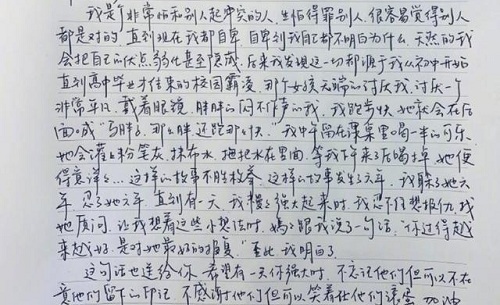 我是个非常怕和别人起冲突的人，生怕得罪别人，很容易觉得别人
都是对的，直到现在我都自卑，自卑到我自己都不明白为什么，天然的我
会把自己的优点弱化甚至隐藏，后来我发现这一切都源于我从初中开始
直到高中毕业才结束的校园霸凌，那个女孩无端的讨厌我，讨厌一个
非常平凡，戴着眼镜，胖胖的闷不作声的我，我跑步快，她就会在后
面喊"胖子，那么胖还跑那么快。"我中午留在课桌里喝一半的可乐
她会灌如粉笔灰，抹布水，拖把水在里面，等我下午来了后喝掉，她便
得意洋洋…这样的故事不胜枚举，这样的故事发生了六年，我躲了她六
年，忍了她六年，直到有一天，我强大起来时，我忍不住想报仇，找
她质问，让我想着这些小想法时，妈妈跟我说了一句话，"你过得越
来越好，是对她最好的报复"至此，我明白了
这句话也送给你，希望有一天你强大时，不忘记他们但可以不在
意他们留下的印记，不感谢他们但可以笑着让他们